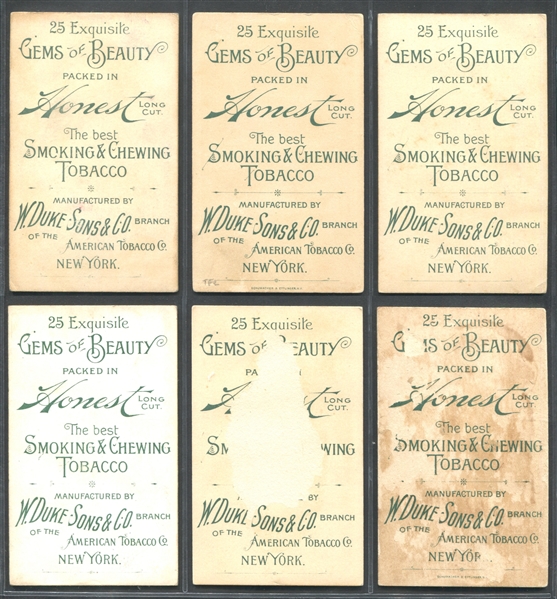 25 Exquisite
GEMS OF BEAUTY
PACKED IN
Honest LONG CUT.
The best
SMOKING & CHEWING
TOBACCO
MANUFACTURED BY
W. DUKE SONS & CO. BRANCH
OF THE AMERICAN TOBACCO CO.
NEW YORK.
25 Exquisite
GEMS OF BEAUTY
PACKED IN
Honest LONG CUT.
The best
SMOKING & CHEWING
TOBACCO
MANUFACTURED BY
W. DUKE SONS & CO. BRANCH
OF THE AMERICAN TOBACCO CO.
NEW YORK.
25 Exquisite
GEMS OF BEAUTY
PACKED IN
Honest LONG CUT.
The best
SMOKING & CHEWING
TOBACCO
MANUFACTURED BY
W. DUKE SONS & CO. BRANCH
OF THE AMERICAN TOBACCO CO.
NEW YORK.
25 Exquisite
GEMS OF BEAUTY
PACKED IN
Honest LONG CUT.
The best
SMOKING & CHEWING
TOBACCO
MANUFACTURED BY
W. DUKE SONS & CO. BRANCH
OF THE AMERICAN TOBACCO CO.
NEW YORK.
25 Exquisite
GEMS OF BEAUTY
LONG CUT.
BY
W. DUKE SONS & CO. BRANCH
OF THE AMERICAN TOBACCO CO.
NEW YORK.
25 Exquisite
OF BEAUTY
PACKED IN
Honest LONG CUT.
The best
SMOKING & CHEWING
TOBACCO
MANUFACTURED BY
W. DUKE SONS & CO. BRANCH
OF THE AMERICAN TOBACCO CO.
NEW YOR